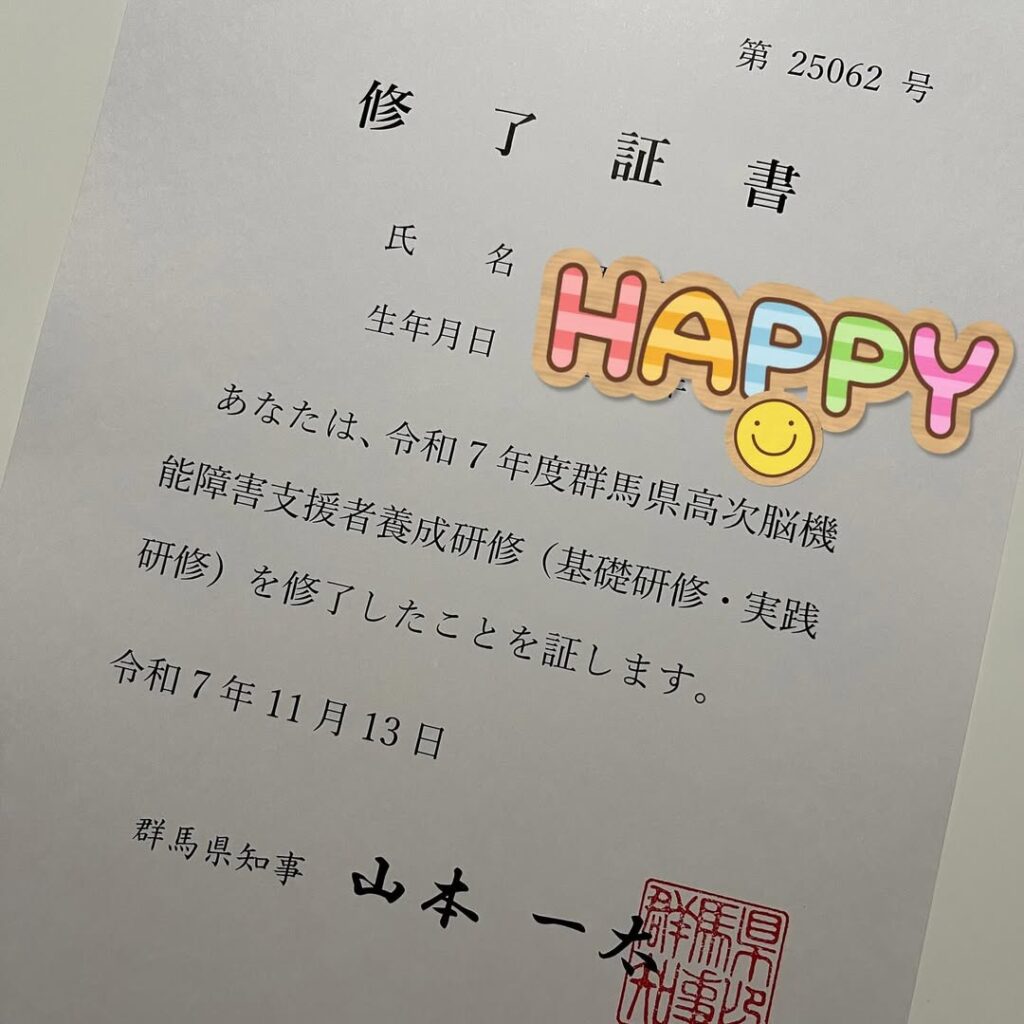 第 25062 号
修了証書
氏名
生年月日
HAPPY
あなたは、令和7年度群馬県高次脳機
能障害支援者養成研修（基礎研修・実践
研修）を修了したことを証します。
令和7年11月13日
群馬県知事 山本一太
群馬県知事